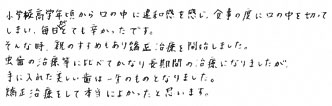 小学校高学年頃から口の中に違和感を感じ、食事の度に口の中を切って
しまい、毎日とても辛かったです。
そんな時、親のすすめもあり矯正治療を開始しました。
虫歯の治療等に比べてかなり長期間の治療になりましたが、
手に入れた美しい歯は一生のものとなりました。
矯正治療をして本当によかったと思います。